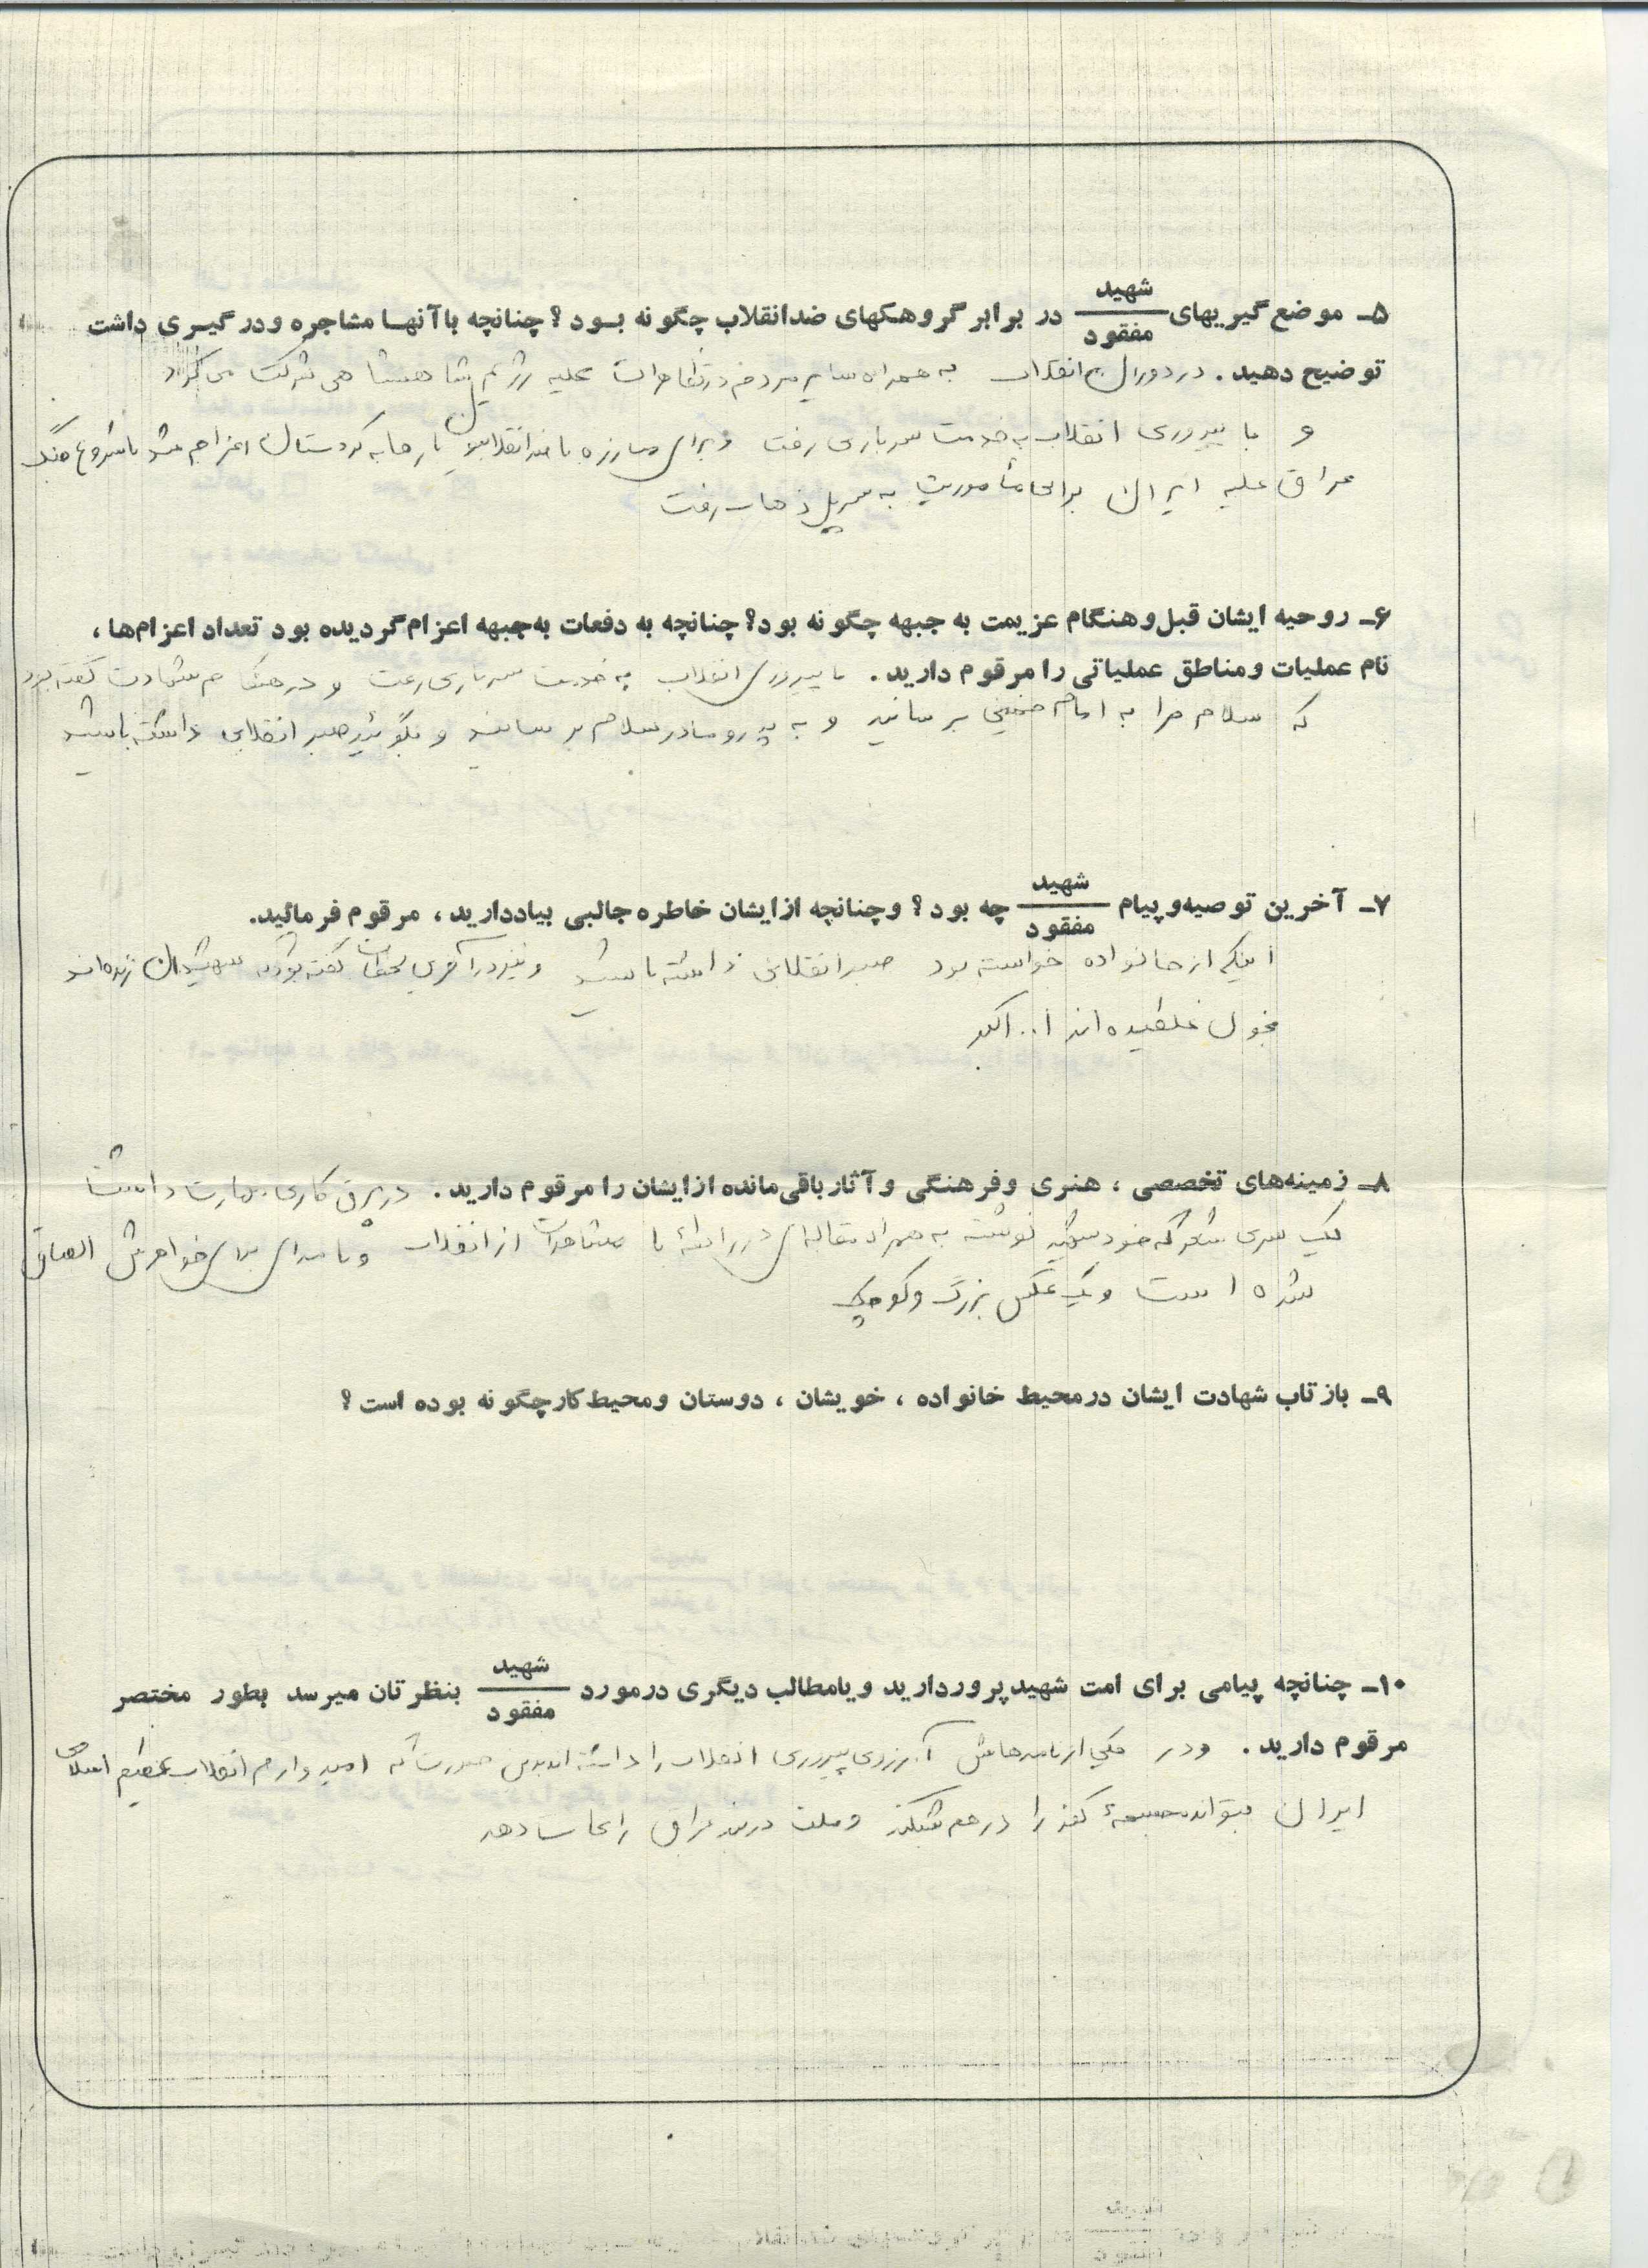 ۵ـ موضع گیریهای شهید / مفقود در برابر گروهکهای ضدانقلاب چگونه بود؟ چنانچه با آنها مشاجره و درگیری داشت
توضیح دهید. در دوران انقلاب به همراه سایر مردم در تظاهرات علیه رژیم شاهنشاهی شرکت می کرد
و با پیروزی انقلاب به خدمت سربازی رفت و برای مبارزه با ضد انقلابیون بارها به کردستان اعزام شد با شروع جنگ
عراق علیه ایران برای مأموریت به سرپل ذهاب رفت
۶ـ روحیه ایشان قبل و هنگام عزیمت به جبهه چگونه بود؟ چنانچه به دفعات به جبهه اعزام گردیده بود تعداد اعزام‌ها،
نام عملیات و مناطق عملیاتی را مرقوم دارید. با پیروزی انقلاب به خدمت سربازی رفت و در هنگام شهادت گفته بود
که سلام مرا به امام خمینی برسانید و به پدر و مادر سلام برسانید و بگوئید صبر انقلابی داشته باشید
۷ـ آخرین توصیه و پیام شهید / مفقود چه بود؟ و چنانچه از ایشان خاطره جالبی بیاد دارید، مرقوم فرمائید.
اینکه از خانواده خواسته بود صبر انقلابی داشته باشید و نیز در آخرین لحظات گفته بود که شهیدان زنده‌اند
بخون غلطیده اند ا.. اکبر
۸ـ زمینه‌های تخصصی، هنری و فرهنگی و آثار باقی‌مانده از ایشان را مرقوم دارید. در برق کاری مهارت داشت
یک سری شعر که خود شهید نوشته به همراه مقاله‌ای در رابطه با مشاهدات از انقلاب و نامه‌ای برای خواهرش الصاق
شده است و یک عکس بزرگ و کوچک
۹ـ بازتاب شهادت ایشان در محیط خانواده، خویشان، دوستان و محیط کار چگونه بوده است؟
۱۰ـ چنانچه پیامی برای امت شهید پرور دارید و یا مطالب دیگری در مورد شهید / مفقود بنظرتان میرسد بطور مختصر
مرقوم دارید. و در یکی از نامه‌هایش آرزوی پیروزی انقلاب را داشته صورت که امیدوارم انقلاب عظیم اسلامی
ایران بتواند کفر را در هم شکند و ملت دربند عراق را نجات دهد